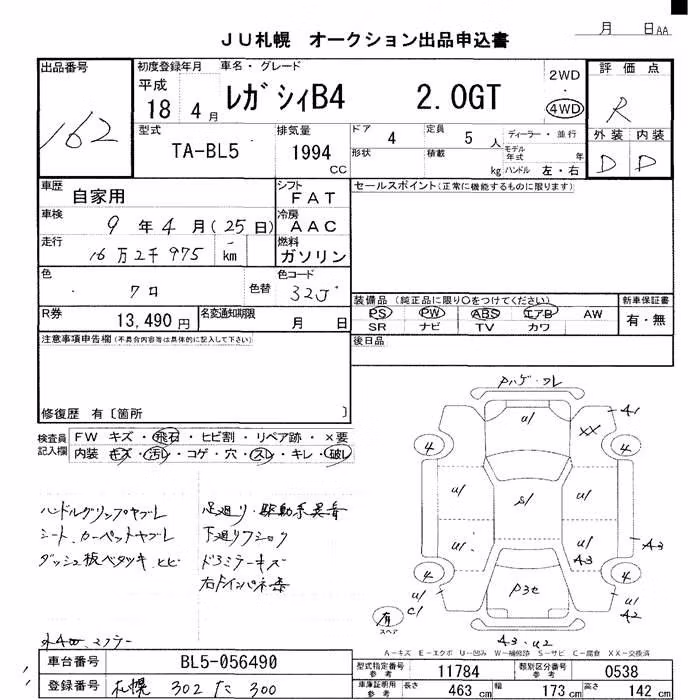 月 日AA
JU札幌 オークション出品申込書
出品番号 162
初度登録年月 平成 18 4 月
車名・グレード レガシィB4 2.0GT
2WD ・ 4WD
評価点 R
外装 内装
D D
型式 TA-BL5
排気量 1994 CC
ドア 4 定員 5 人 ディーラー・並行
形状 積載 kg モデル年式 年
ハンドル 左・右
車歴 自家用
シフト FAT
セールスポイント(正常に機能するものに限ります)
車検 9 年 4 月(25 日)
冷房 AAC
走行 16万2千975 km
燃料 ガソリン
色 クロ 色替
色コード 32J
R券 13,490 円
名変通知期限 月 日
装備品 (純正品に限り○をつけてください)
新車保証書
PS PW ABS エアB AW
SR ナビ TV カワ
有・無
注意事項申告欄(不具合内容等は具体的に記入して下さい)
後日品
修復歴 有〔箇所 〕
検査員記入欄
FW キズ・飛石・ヒビ割・リペア跡・×要
内装 キズ・汚レ・コゲ・穴・スレ・キレ・破レ
ハンドルグリップヤブレ
シート、カーペットヤブレ
ダッシュ板ベタツキ、ヒビ
足廻り・駆動系異音
下廻りフショク
ドラミラーキズ
Pハゲ・ワレ
U1
A1
XX
4 4
U1 U1
S1
U1 U1
A3 A3
4 4
P3e
U1
C1
U1
A2
有
スペア
A3・U2
A-キズ E-エクボ U-凹み W-補修跡 S-サビ C-腐食 XX-交換済
車台番号 BL5-056490
登録番号 札幌 302 た 300
型式指定番号 参考 11784
類別区分番号 参考 0538
車庫証明用 参考 長さ 463 cm 幅 173 cm 高さ 142 cm